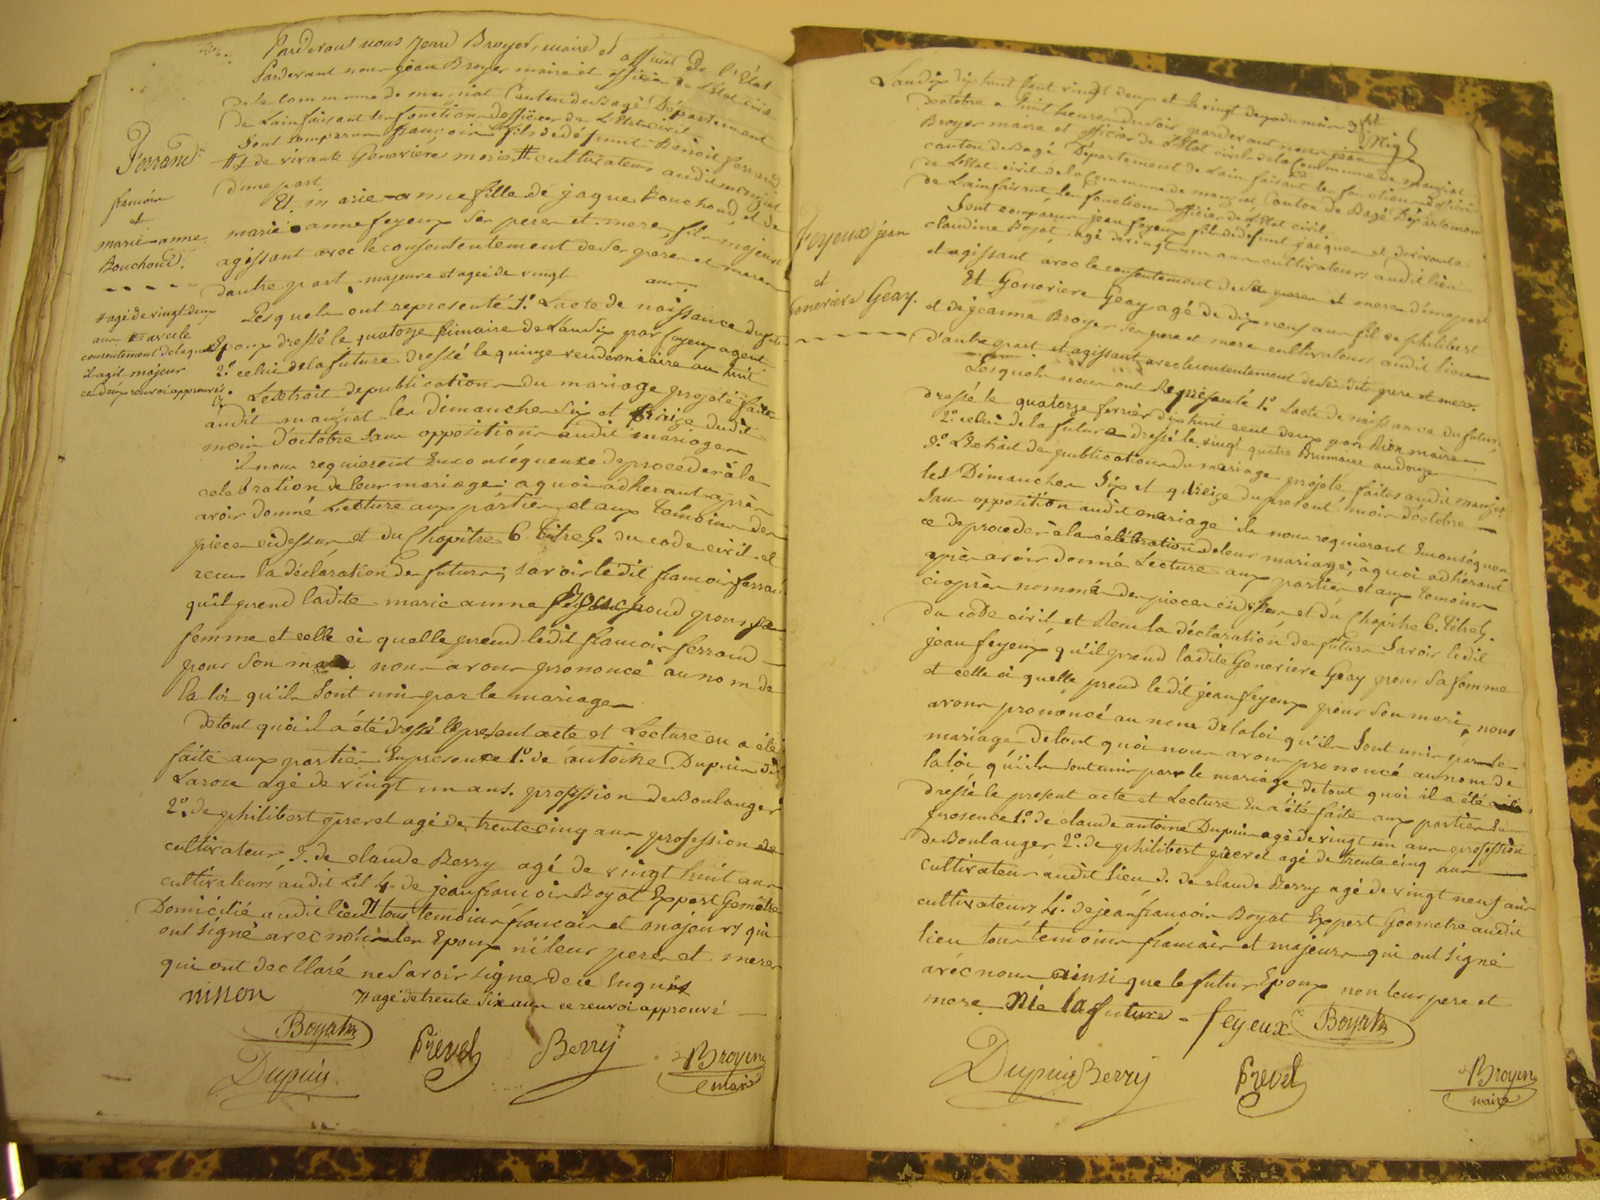 Pardevant nous Jean Broyer, maire et officier de l'Etat
Pardevant nous jean Broyer maire et officier de L'Etat civil
de la commune de manziat Canton de Bagé Département
de Lain faisant les fonctions d'officier de L'Etat civil
Sont comparus françois fils de défunt Benoit ferrand
et de vivante Genevieve moiss cultivateurs audit manziat
d'une part
Et marie-anne fille de jaque Bouchoud et de
marie anne feyeux Ses pere et mere, fils majeurs
agissant avec le consentement de Ses pere et mere
d'autre part majeure et agée de vingt ans
Lesquels ont representé 1.° L'acte de naissance du futur
Epoux dressé le quatorze frimaire de L'an Six par feyeux agent
2.° celui de la future dressé le quinze vendemiaire an huit
3.° L'extrait de publications du mariage projeté faites
audit manziat les dimanches Six et treize dudit
mois d'octobre Sans oppositions audit mariage
il nous requierent En consequence de proceder à la
celebration de leur mariage; a quoi adherant après
avoir donné Lecture aux parties et aux temoins des
pieces cidessus et du Chapitre 6. titre 5. du code civil et
recu la déclaration des futurs; savoir ledit francois ferrand
qu'il prend ladite marie anne Bouchoud pour sa
femme et celle ci quelle prend ledit francois ferrand
pour Son mari nous avons prononcé au nom de
la loi qu'ils Sont unis par le mariage
De tout quoi il a été dressé le present acte et Lecture en a été
faite aux parties En presence 1.° de antoine Dupuis dit
Laroze agé de vingt un ans. profession de Boulanger
2.° de philibert prevel agé de trente cinq ans profession de
cultivateur 3. de claude Berry agé de vingt huit ans
cultivateurs audit lieu 4. de jean francois Boyat Expert Geometre
Domicilié audit lieu # tous temoins francais et majeurs qui
ont signé avec nous non les Epoux ni leurs peres et meres
qui ont decllaré ne Savoir signer de ce Enquis
# agé de trente Six ans ce renvoi approuvé
nisson
Boyat
Dupuis
Prevel
Berry
Broyer
maire
Ferrand
francois
et
marie-anne
Bouchoud.
# agé de vingt deux
ans et avec le
consentement de laquelle
il agit majeur
ces deux renvoi approuvés
L'an dix huit cent vingt deux et le vingt deux du mois
d'octobre a huit heures du soir pardevant nous jean
Broyer maire et officier de L'Etat civil de la Commune de manziat
canton de Bagé Département de Lain faisant les fonctions d'officier
de L'Etat civil de la Commune de manziat Canton de Bagé Département
de Lain faisant les fonctions d'officier de L'Etat civil.
Sont comparus jean feyeux fils de défunt jacques et de vivante
claudine Boyat agé de vingt un ans cultivateurs audit lieu
et agissant avec le consentement de Sa mere d'une part
Et Genevieve Geay agé de dix neuf ans fil de philibert
et de jeanne Broyer Ses pere et mere cultivateurs audit lieu
d'autre part et agissant avec le consentement de Ses dits pere et mere.
Lesquels nous ont Représenté 1.° L'acte de naissance du futur
dressé le quatorze fevrier dix huit cent deux par maire
2.° celui de la future dressé le vingt quatre Brumaire an douze
3.° L'Extrait de publications du mariage projeté, faites audit manziat
les Dimanches Six et treize du present mois d'octobre
Sans opposition audit mariage ils nous requierent En conséquence
de proceder à la célébration de leur mariage, a quoi adhérant
après avoir donné Lecture aux parties et aux temoins
ciaprès nommés des pieces cidessus et du Chapitre 6. titre 5.
du code civil, et Recu la déclaration des futurs Savoir ledit
jean feyeux qu'il prend ladite Genevieve Geay pour Sa femme
et celle ci quelle prend ledit jean feyeux pour Son mari, nous
avons prononcé au nom de la loi qu'ils Sont unis par le
mariage De tout quoi nous avons prononcé au nom de
la loi qu'ils Sont unis par le mariage, de tout quoi il a été
dressé le present acte et Lecture En a été faite aux parties En
presence 1.° de claude antoine Dupuis agé de vingt un ans profession
de Boulanger 2.° de philibert prevel agé de trente cinq ans
cultivateur audit lieu 3. de claude Berry agé de vingt neuf ans
cultivateurs 4.° de jean francois Boyat Expert Geometre audit
lieu tous temoins francais et majeurs qui ont signé
avec nous ainsi que le futur Epoux non leurs pere et
mere Nie la future - feyeux Boyat
Dupuis Berry
Prevel
Broyer
maire
Feyeux jean
et
Genevieve Geay.